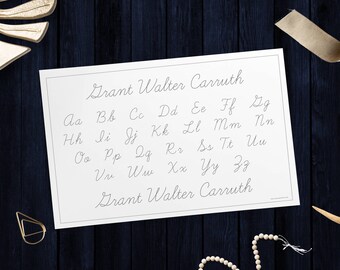 Grant Walter Carruth
Aa Bb Cc Dd Ee Ff Gg
Hh Ii Jj Kk Ll Mm Nn
Oo Pp Qq Rr Ss Tt Uu
Vv Ww Xx Yy Zz
Grant Walter Carruth